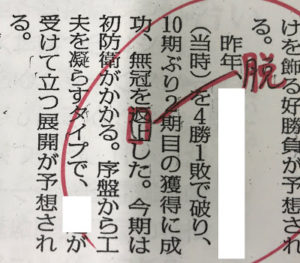 けを飾る好勝負が予想され
る。
昨年、
(当時)を4勝1敗で破り、
10期ぶり2期目の獲得に成
功、無冠を返上した。今期は
初防衛がかかる。序盤から工
夫を凝らすタイプで、が
受けて立つ展開が予想され
る。
脱